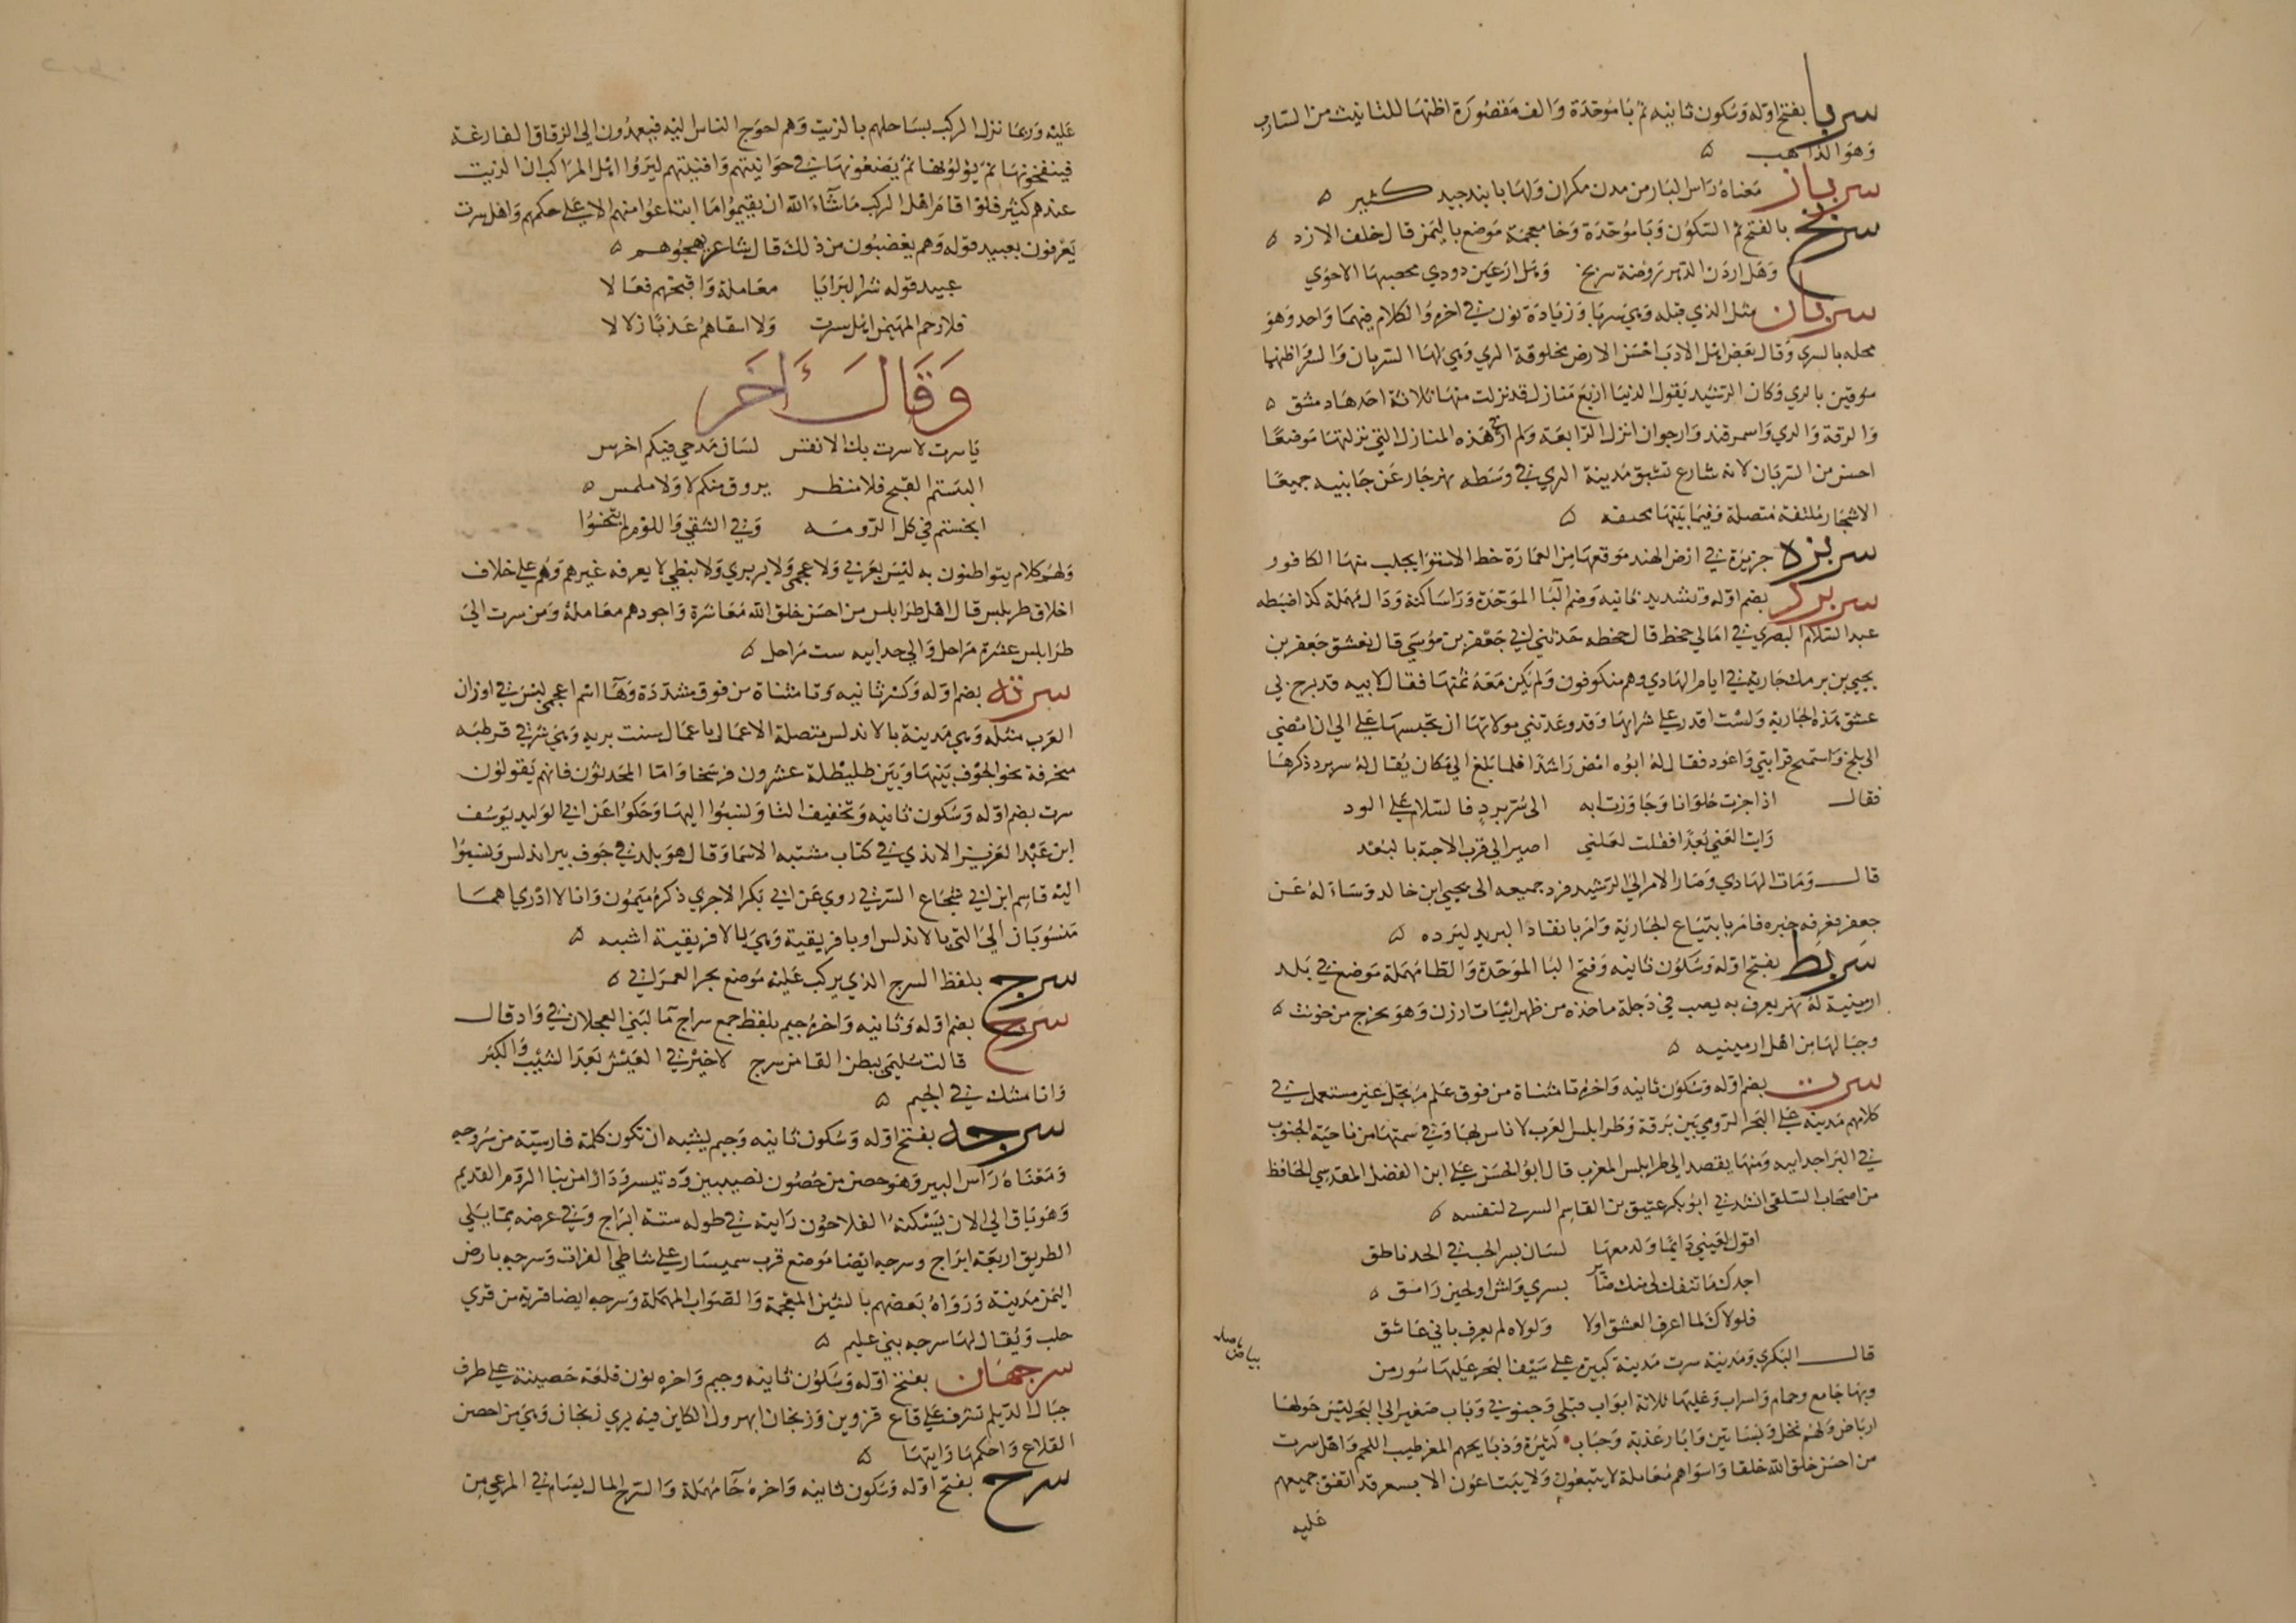 سربا بفتح اوله وسكون ثانيه ثم با موحدة والف مقصورة اظنها للتانيث من السارب
وهو الذاهب ه
سرباز معناه راس الباز من مدن مكران ولها بابند جيد كثير ه
سربخ بالفتح ثم السكون وبا موحدة وخا معجمة موضع باليمن قال خلف الازد ه
وهل اردن الدهر روضة سربخ وهل ارعين ذودي محصبها الاحوي
سربان مثل الذي قبله وهي سربا وزيادة نون في اخره والكلام فيهما واحد وهو
محله بالري وقال بعض اهل الادب احسن الارض مخلوقة الري وهي لها السربان والسر اظنها
سوقين بالري وكان الرشيد يقول الدنيا اربع منازل قد نزلت منها ثلاثة احدها دمشق ه
والرقة والري واسمرقند وارجوان انزل الرابعة ولم ار في هذه المنازل التي نزلتها موضعا
احسن من السربان لانه شارع تشق مدينة الري في وسطه نهر جار عن جانبيه جميعا
الاشجار ملتفة متصلة وفيما بينها محدقه ه
سربزه جزيرة في ارض الهند موقعها من العمارة خط الاستوا يجلب منها الكافور
سربرد بضم اوله وتشديد ثانيه وضم البا الموحدة ورا ساكنة ودال مهملة كذا ضبطه
عبد السلام البصري في امالي جحظ قال جحظه حدثني لي جعفر بن موسي قال تعشق جعفر بن
يحيي بن برمك جارية في ايام الهادي وهم منكوفون ولم يكن معه ثمنها فقال لابيه قد برح بي
عشق هذه الجارية ولست اقدر علي شرايها وقد وعدتني مولاتها ان تحبسها علي الي ان امضي
الي بلخ واستمح قرابتي واعود فقال له ابوه امض راشدا فلما بلغ الي مكان يقال له سربرد ذكرها
فقال اذا جزت حلوانا وجاوزت ابه الي سربرد فالسلام علي الود
رايت الغني بعدا فقلت لعلني اصير الي قرب الاحبة بالبعد
قال ومات الهادي وصار الامر الي الرشيد فرد جميعه الي يحيي ابن خالد وساله عن
جعفر فعرفه خبره فامر بابتياع الجارية وامر بانقاذ البريد ليرده ه
سربط بفتح اوله وسكون ثانيه وفتح البا الموحدة والطا مهملة موضع في بلد
ارمينية له نهر يعرف به يصب في دجلة ماخذه من ظهر ابيات ارزن وهو يخرج من خونث ه
وجبالها من اهل ارمينيه ه
سرت بضم اوله وسكون ثانيه واخره تا مثناة من فوق علم مرتجل غير مستعمل في
كلامهم مدينة علي البحر الرومي بين برقة وطرابلس الغرب لا باس بها وفي سمتها من ناحية الجنوب
في البر اجدابيه ومنها يقصد الي طرابلس المغرب قال ابو الحسن علي ابن الفضل المقدسي الحافظ
من اصحاب السلفي انشدني ابو بكر عتيق بن القاسم السرتي لنفسه ه
اقول لعيني دايما ولدمعها لسان بسر الحب في الخد ناطق
اجدك ما تنفك لي منك ضائر بسري واش او لحين رامق ه
فلولاك لما اعرف العشق اولا ولولاه لم يعرف باني عاشق
قال البكري ومدينة سرت مدينة كبيرة علي سيف البحر عليها سور من
بياض اصله
وبها جامع وحمام واسراب وعليها ثلاثة ابواب قبلي وجنوني وباب صغير الي البحر ليس حولها
ارباض ولهم نخل وبساتين وابار عذبه وجباب كثيرة وذبايحهم المغز طيب اللحم واهل سرت
من احسن خلق الله خلقا واسواهم معاملة لا يتبعون ولا يبتاعون الا بسعر قد اتفق جميعهم
عليه
عليه وربما نزل المركب بساحلهم بالزيت وهم احوج الناس اليه فيعمدون الي الزقاق الفارغة
فينفخونها ثم يوكونها ثم يضعونها في حوانيتهم وافنيتهم ليروا اهل المراكب ان الزيت
عندهم كثير فلو اقام اهل المركب ما شاء الله ان يقيموا ما ابتاعوا منهم الا علي حكمهم واهل سرت
يعرفون بعبيد قوله وهم يغضبون من ذلك قال شاعر يهجوهم ه
عبيد قوله شر البرايا معاملة واقبحهم فعالا
فلا رحم المهيمن اهل سرت ولا اسقاهم عذبا زلالا
وقال ءاخر
يا سرت لا سرت بك الانفس لسان مدحي فيكم اخرس
البستم القبح فلا منظر يروق منكم لا ولا ملمس ه
ابخستم في كل اكرومه وفي الشقي واللوم لم تبخسوا
ولهم كلام يتواطنون به ليس بعربي ولا عجمي ولا بربري ولا نبطي لا يعرفه غيرهم وهم علي خلاف
اخلاق طربلس قال اهل طرابلس من احسن خلق الله معاشرة واجودهم معاملة ومن سرت الي
طرابلس عشرة مراحل والي جدابيه ست مراحل ه
سرته بضم اوله وكسر ثانيه وتا مثناة من فوق مشددة وها اسم اعجمي ليس في اوزان
العرب مثله وهي مدينة بالاندلس متصلة الاعمال باعمال سنت بريه وهي شرقي قرطبه
منحرفة نحو الجوف بينها وبين طليطلة عشرون فرسخا واما المحدثون فانهم يقولون
سرت بضم اوله وسكون ثانيه وتخفيف التا ونسبوا اليها وحكوا عن ابي الوليد يوسف
ابن عبد العزيز الاندي في كتاب مشتبه الاسما وقال هو بلد في جوف بير اندلس ونسبوا
اليه قاسم ابن لي شجاع السرتي روي عن ابي بكر الاجري ذكره ميمون وانا لا ادري اهما
منسوبان الي التي بالاندلس او بافريقية وهي بالافريقية اشبه ه
سرج بلفظ السرج الذي يركب عليه موضع بحر العمزلي ه
سرج بضم اوله وثانيه واخره جيم بلفظ جمع سراج ما لبني العجلان في واد قال
قالت سليمي ببطن القا من سرج لا خير في العيش بعد الشيب والكبر
وانا مشك في الجيم ه
سرجه بفتح اوله وسكون ثانيه وجيم يشبه ان تكون كلمة فارسية من سروجه
ومعناه راس البير وهو حصن من حصون نصيبين ودنيسر ودارا من بنا الروم القديم
وهو باق الي الان يسكنه الفلاحون رايته في طوله ستة ابراج وفي عرضه مما يلي
الطريق اربعة ابراج وسرجه ايضا موضع قرب سميسار علي شاطي الفرات وسرجه بارض
اليمن مدينه ورواه بعضهم بالشين المعجمة والصواب المهملة وسرجه ايضا قرية من قري
حلب ويقال لها سرجه بني عليم ه
سرجهان بفتح اوله وسكون ثانيه وجيم واخره نون قلعة حصينة علي طرف
جبال الديلم تشرف علي قاع قزوين وزنجان ابهر ول الكاين فيه يري زنجان وهي من احصن
القلاع واحكمها رايتها ه
سرح بفتح اوله وسكون ثانيه واخره حا مهملة والسرح المال يسام في المرعي من